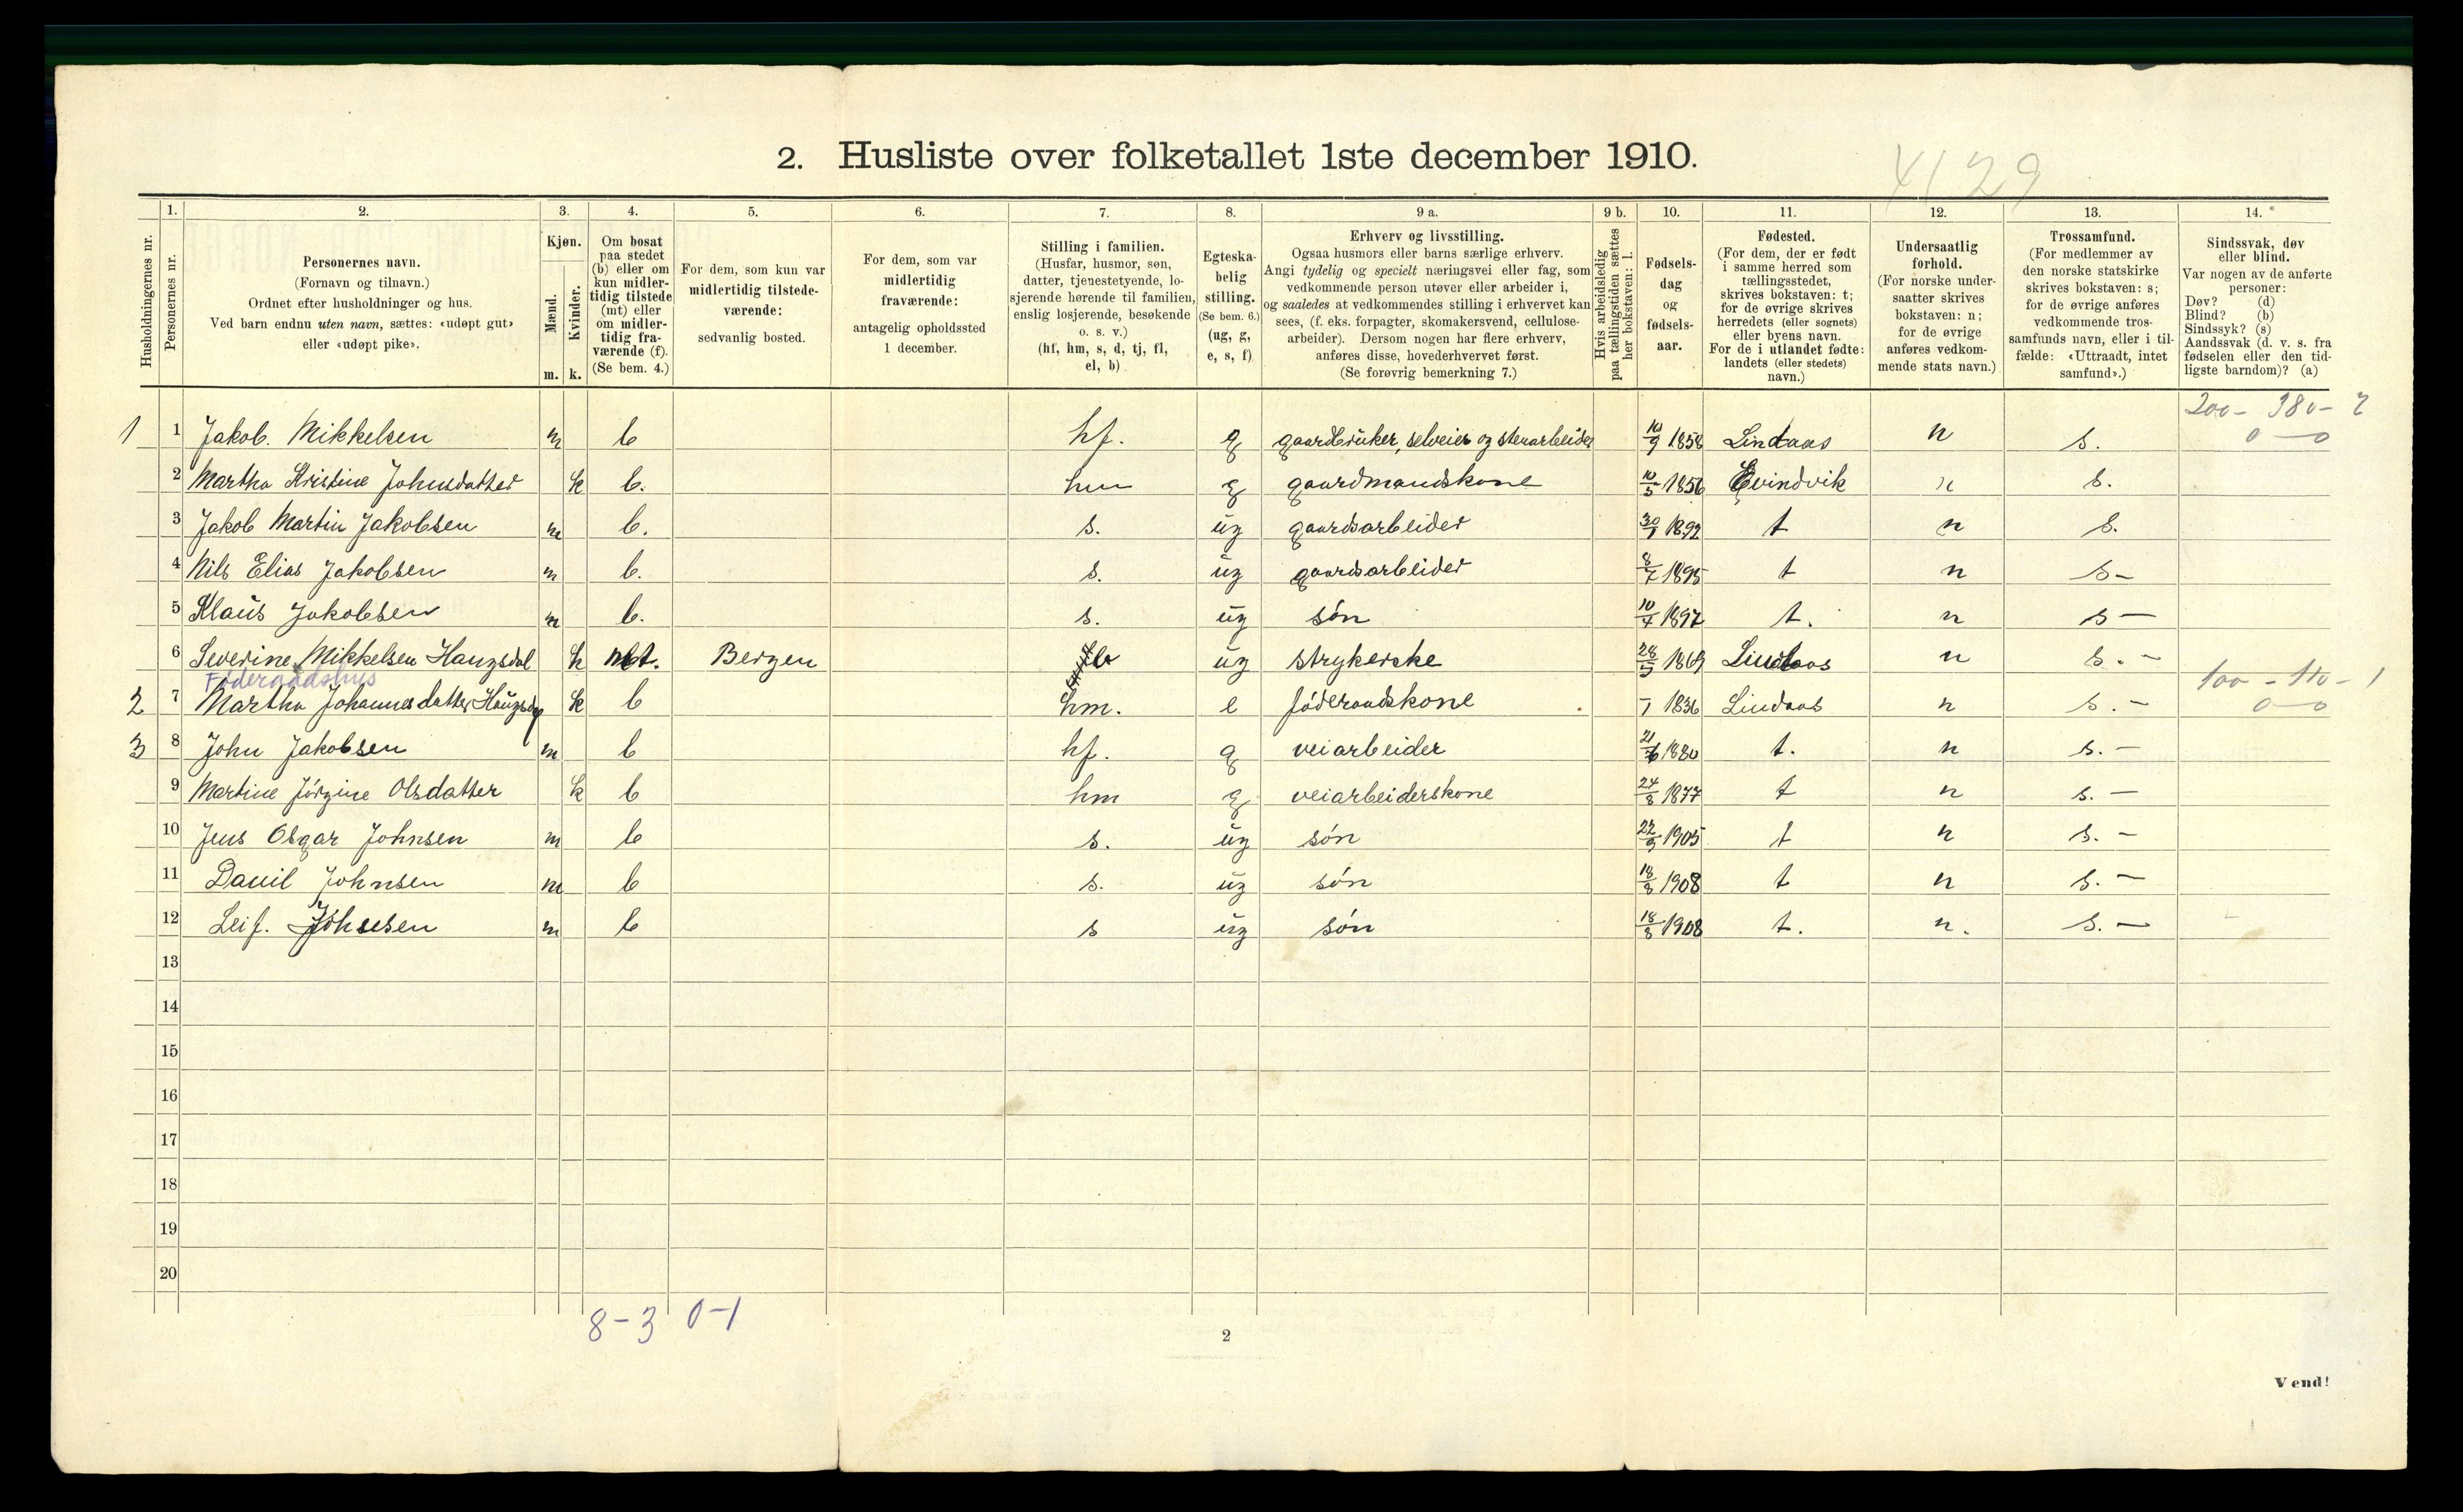 2. Husliste over folketallet 1ste december 1910.
4129
Husholdningernes nr.
1.
Personernes nr.
2.
Personernes navn.
(Fornavn og tilnavn.)
Ordnet efter husholdninger og hus.
Ved barn endnu uten navn, sættes: «udøpt gut»
eller «udøpt pike».
3.
Kjøn.
Mænd.
Kvinder.
m. k.
4.
Om bosat
paa stedet
(b) eller om
kun midler-
tidig tilstede
(mt) eller
om midler-
tidig fra-
værende (f).
(Se bem. 4.)
5.
For dem, som kun var
midlertidig tilstede-
værende:
sedvanlig bosted.
6.
For dem, som var
midlertidig
fraværende:
antagelig opholdssted
1 december.
7.
Stilling i familien.
(Husfar, husmor, søn,
datter, tjenestetyende, lo-
sjerende hørende til familien,
enslig losjerende, besøkende
o. s. v.)
(hf, hm, s, d, tj, fl,
el, b)
8.
Egteska-
belig
stilling.
(Se bem. 6.)
(ug, g,
e, s, f)
9 a.
Erhverv og livsstilling.
Ogsaa husmors eller barns særlige erhverv.
Angi tydelig og specielt næringsvei eller fag, som
vedkommende person utøver eller arbeider i,
og saaledes at vedkommendes stilling i erhvervet kan
sees, (f. eks. forpagter, skomakersvend, cellulose-
arbeider). Dersom nogen har flere erhverv,
anføres disse, hovederhvervet først.
(Se forøvrig bemerkning 7.)
9 b.
Hvis arbeidsledig
paa tællingstiden sættes
her bokstaven: l.
10.
Fødsels-
dag
og
fødsels-
aar.
11.
Fødested.
(For dem, der er født
i samme herred som
tællingsstedet,
skrives bokstaven: t;
for de øvrige skrives
herredets (eller sognets)
eller byens navn.
For de i utlandet fødte:
landets (eller stedets)
navn.)
12.
Undersaatlig
forhold.
(For norske under-
saatter skrives
bokstaven: n;
for de øvrige
anføres vedkom-
mende stats navn.)
13.
Trossamfund.
(For medlemmer av
den norske statskirke
skrives bokstaven: s;
for de øvrige anføres
vedkommende tros-
samfunds navn, eller i til-
fælde: «Uttraadt, intet
samfund».)
14.
Sindssvak, døv
eller blind.
Var nogen av de anførte
personer:
Døv? (d)
Blind? (b)
Sindssyk? (s)
Aandssvak (d. v. s. fra
fødselen eller den tid-
ligste barndom)? (a)
200 - 380 - 2
1 1 Jakob. Mikkelsen m b hf. g gaardbruker, selveier og stenarbeider 10/9 1858 Lindaas n s. 0 — 0
2 Martha Kristine Johnsdatter k b. hm g gaardmandskone 10/5 1856 Evindvik n s.
3 Jakob Martin Jakobsen m b. s. ug gaardsarbeider 30/1 1892 t n s.
4 Nils Elias Jakobsen m b. s. ug gaardsarbeider 8/7 1895 t n s -
5 Klaus Jakobsen m b. s. ug søn 10/7 1897 t. n s —
6 Severine Mikkelsen Haugsdal k mt. Bergen b ug strykerske 28/5 1869 Lindaas n s. -
Föderaadshus
100 - 110 - 1
2 7 Martha Johannesdatter Haugsdal k b hm. e föderaadskone 1836 Lindaas n s. - 0 — 0
3 8 John Jakobsen m b hf. g veiarbeider 21/6 1880 t. n s. —
9 Martine Jörgine Olsdatter k b hm g veiarbeiderskone 24/8 1877 t n s. —
10 Jens Osgar Johnsen m b s. ug søn 22/9 1905 t n s. -
11 Danil Johnsen m b s. ug søn 18/8 1908 t n s. —
12 Leif. Johnsen m b s ug søn 18/8 1908 t. n. s. —
13
14
15
16
17
18
19
20
8 - 3 0 - 1
2
Vend!